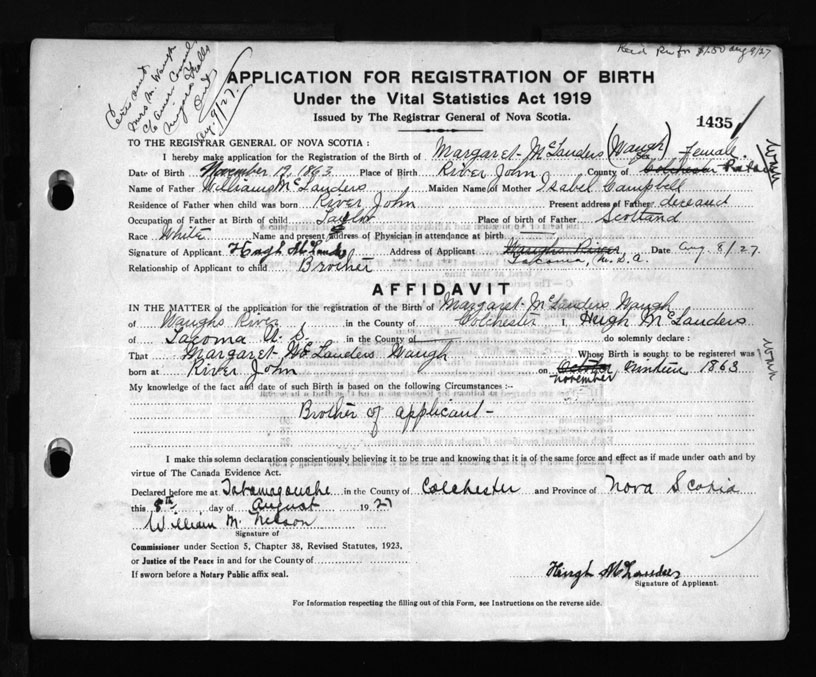 Recd Pn for $1.50 aug 9/27
Mrs M. Waugh
Niagara Falls
Ont
Aug 9/27.
APPLICATION FOR REGISTRATION OF BIRTH
Under the Vital Statistics Act 1919
Issued by The Registrar General of Nova Scotia.
1435
TO THE REGISTRAR GENERAL OF NOVA SCOTIA:
I hereby make application for the Registration of the Birth of Margaret McLanders (Waugh) Sex female
Date of Birth November 19, 1863 Place of Birth River John County of Colchester Pictou
Name of Father William McLanders Maiden Name of Mother Isabel Campbell
Residence of Father when child was born River John Present address of Father deceased
Occupation of Father at Birth of child Taylor Place of birth of Father Scotland
Race White Name and present address of Physician in attendance at birth
Signature of Applicant Hugh McLanders Address of Applicant Waughs River Tacoma, U.S.A. Date Aug. 8/27.
Relationship of Applicant to child Brother
AFFIDAVIT
IN THE MATTER of the application for the registration of the Birth of Margaret McLanders Waugh
of Waughs River in the County of Colchester I, Hugh McLanders
of Tacoma U.S. in the County of do solemnly declare:
That Margaret McLanders Waugh Whose Birth is sought to be registered was
born at River John on October november 1863
My knowledge of the fact and date of such Birth is based on the following Circumstances:-
Brother of applicant-
I make this solemn declaration conscientiously believing it to be true and knowing that it is of the same force and effect as if made under oath and by
virtue of The Canada Evidence Act.
Declared before me at Tatamagouche in the County of Colchester and Province of Nova Scotia
this 8th day of August 1927
William M. Nelson
Signature of
Commissioner under Section 5, Chapter 38, Revised Statutes, 1923,
or Justice of the Peace in and for the County of
If sworn before a Notary Public affix seal.
Hugh McLanders
Signature of Applicant.
For Information respecting the filling out of this Form, see Instructions on the reverse side.